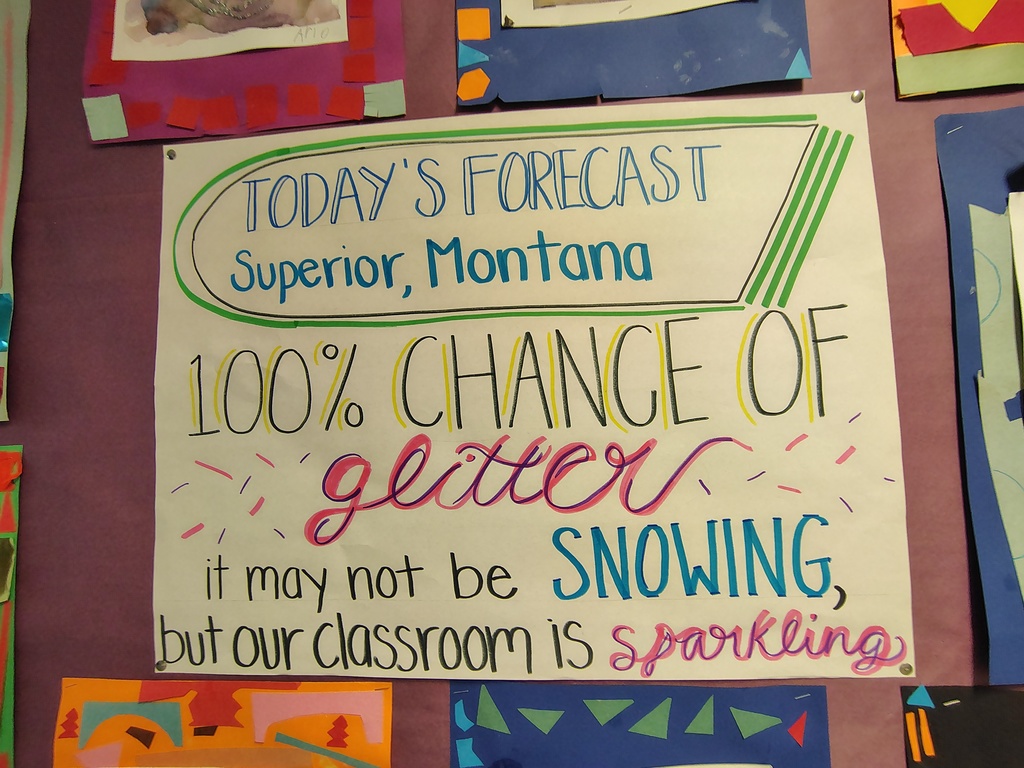 Ari
TODAY'S FORECAST
Superior, Montana
100% CHANCE OF
glitter
it may not be SNOWING,
but our classroom is sparkling